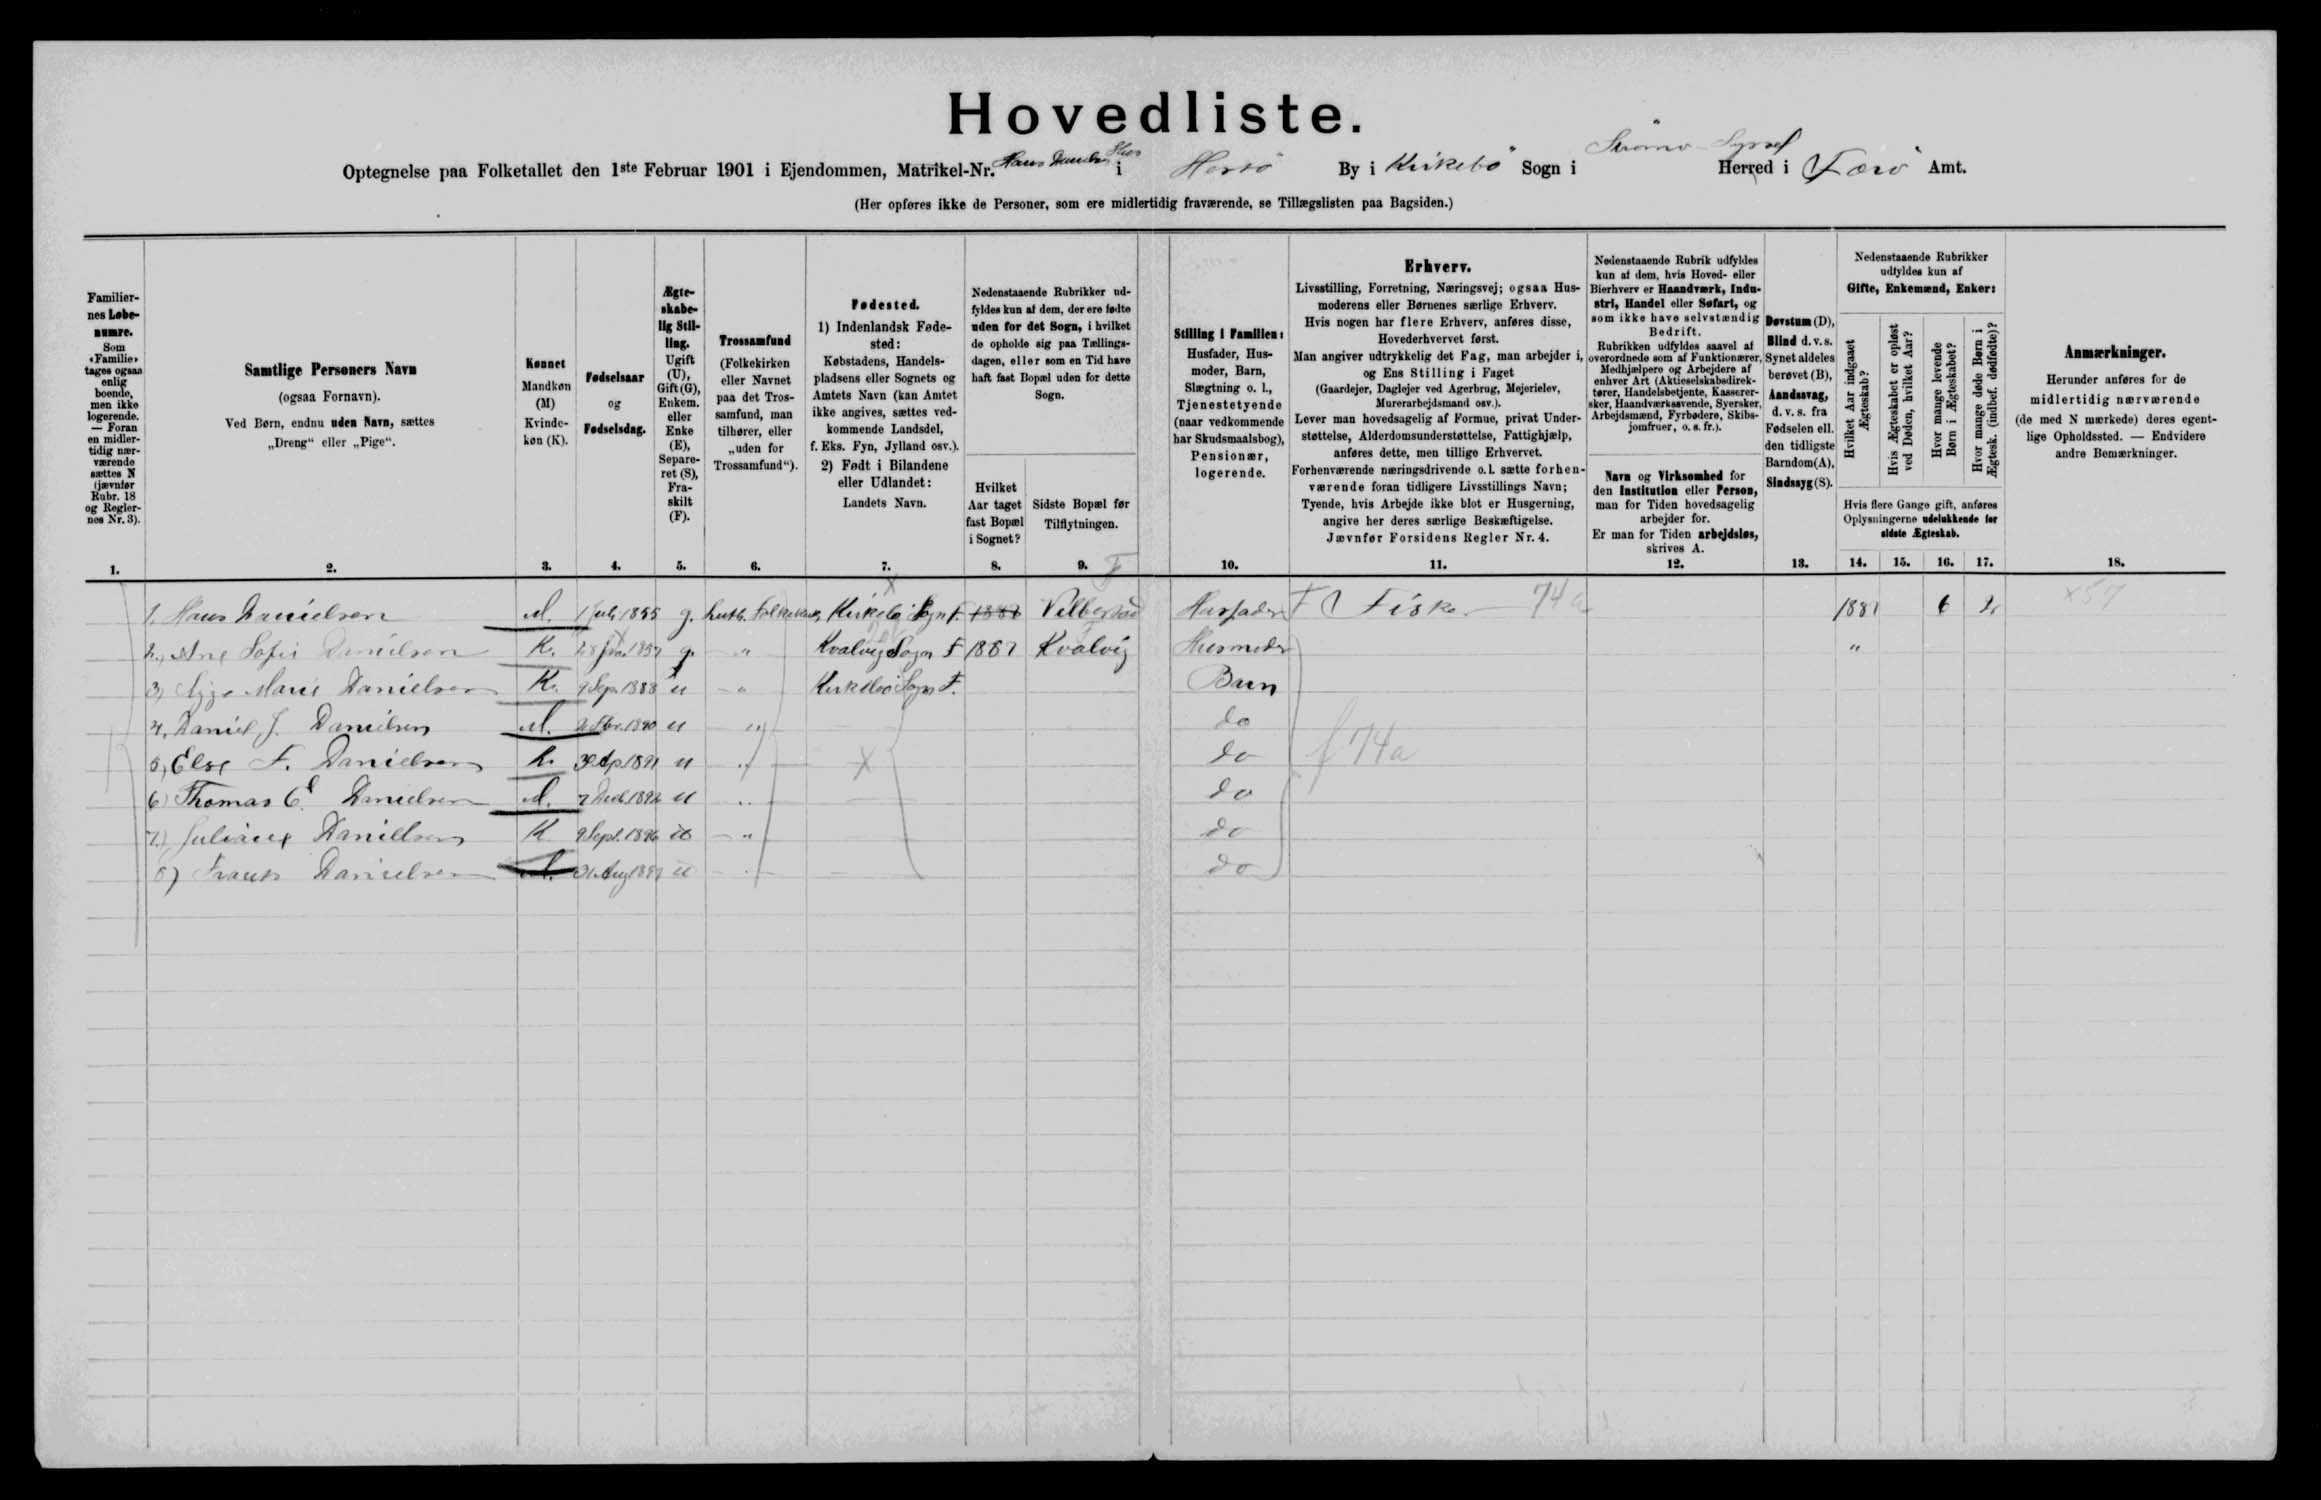 Hovedliste.
Optegnelse paa Folketallet den 1ste Februar 1901 i Ejendommen, Matrikel-Nr. Hans Hus i By i Kirkebö Sogn i Strömö Syssel Herred i Færö Amt.
(Her opføres ikke de Personer, som ere midlertidig fraværende, se Tillægslisten paa Bagsiden.)
Familier-
nes Løbe-
numre.
Som
«Familie»
tages ogsaa
enlig
boende,
men ikke
logerende.
— Foran
en midler-
tidig nær-
værende
sættes N
(jævnfør
Rubr. 18
og Regler-
nes Nr. 3).
1.
Samtlige Personers Navn
(ogsaa Fornavn).
Ved Børn, endnu uden Navn, sættes
„Dreng“ eller „Pige“.
2.
Kønnet
Mandkøn
(M)
Kvinde-
køn (K).
3.
Fødselsaar
og
Fødselsdag.
4.
Ægte-
skabe-
lig Stil-
ling.
Ugift
(U),
Gift (G),
Enkem.
eller
Enke
(E),
Separe-
ret (S),
Fra-
skilt
(F).
5.
Trossamfund
(Folkekirken
eller Navnet
paa det Tros-
samfund, man
tilhører, eller
„uden for
Trossamfund“).
6.
Fødested.
1) Indenlandsk Føde-
sted:
Købstadens, Handels-
pladsens eller Sognets og
Amtets Navn (kan Amtet
ikke angives, sættes ved-
kommende Landsdel,
f. Eks. Fyn, Jylland osv.).
2) Født i Bilandene
eller Udlandet:
Landets Navn.
7.
Nedenstaaende Rubrikker ud-
fyldes kun af dem, der ere fødte
uden for det Sogn, i hvilket
de opholde sig paa Tællings-
dagen, eller som en Tid have
haft fast Bopæl uden for dette
Sogn.
Hvilket
Aar taget
fast Bopæl
i Sognet?
8.
Sidste Bopæl før
Tilflytningen.
9.
Stilling i Familien:
Husfader, Hus-
moder, Barn,
Slægtning o. l.,
Tjenestetyende
(naar vedkommende
har Skudsmaalsbog),
Pensionær,
logerende.
10.
Erhverv.
Livsstilling, Forretning, Næringsvej; ogsaa Hus-
moderens eller Børnenes særlige Erhverv.
Hvis nogen har flere Erhverv, anføres disse,
Hovederhvervet først.
Man angiver udtrykkelig det Fag, man arbejder i,
og Ens Stilling i Faget
(Gaardejer, Daglejer ved Agerbrug, Mejerielev,
Murerarbejdsmand osv.).
Lever man hovedsagelig af Formue, privat Under-
støttelse, Alderdomsunderstøttelse, Fattighjælp,
anføres dette, men tillige Erhvervet.
Forhenværende næringsdrivende o. l. sætte forhen-
værende foran tidligere Livsstillings Navn;
Tyende, hvis Arbejde ikke blot er Husgerning,
angive her deres særlige Beskæftigelse.
Jævnfør Forsidens Regler Nr. 4.
11.
Nedenstaaende Rubrik udfyldes
kun af dem, hvis Hoved- eller
Bierhverv er Haandværk, Indu-
stri, Handel eller Søfart, og
som ikke have selvstændig
Bedrift.
Rubrikken udfyldes saavel af
overordnede som af Funktionærer,
Medhjælpere og Arbejdere af
enhver Art (Aktieselskabsdirek-
tører, Handelsbetjente, Kasserer-
sker, Haandværkssvende, Syersker,
Arbejdsmænd, Fyrbødere, Skibs-
jomfruer, o. s. fr.).
Navn og Virksomhed for
den Institution eller Person,
man for Tiden hovedsagelig
arbejder for.
Er man for Tiden arbejdsløs,
skrives A.
12.
Døvstum (D),
Blind d. v. s.
Synet aldeles
berøvet (B),
Aandssvag,
d. v. s. fra
Fødselen ell.
den tidligste
Barndom (A),
Sindssyg (S).
13.
Nedenstaaende Rubrikker
udfyldes kun af
Gifte, Enkemænd, Enker:
Hvilket Aar indgaaet
Ægteskab?
Hvis Ægteskabet er opløst
ved Døden, hvilket Aar?
Hvor mange levende
Børn i Ægteskabet?
Hvor mange døde Børn i
Ægtesk. (indbef. dødfødte)?
Hvis flere Gange gift, anføres
Oplysningerne udelukkende for
sidste Ægteskab.
14. 15. 16. 17.
Anmærkninger.
Herunder anføres for de
midlertidig nærværende
(de med N mærkede) deres egent-
lige Opholdssted. — Endvidere
andre Bemærkninger.
18.
1. Hans Danielsen M. 1 Juli 1855 g. Luth. Kirkebö Sogn F. Husfader Fisker 74a 1881 6 2 x57
2., Ane Sofie Danielsen K. 1857 g. " Kvalvig Sogn F 1881 Kvalvig Husmoder "
3) Marie Danielsen K. 9 Sep. 1888 u " Kirkebö Sogn F. Barn
4, Daniel J. Danielsen M. 1890 u " do
5, Else F. Danielsen K. 1891 u " do f 74a
6) Thomas Danielsen M. 7 1892 u " do
7.) Juliane Danielsen K 9 Sept. 1896 u " do
8) Frants Danielsen M. 31 Aug 1897 u " do